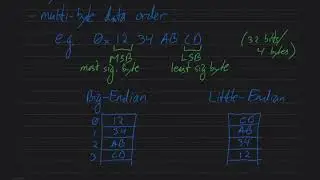 - multi-byte data order
e.g. 0x 12 34 AB CD (32 bits/
4 bytes)
MSB LSB
most sig. byte least sig byte
Big-Endian Little-Endian
0 12 CD
1 34 AB
2 AB 34
3 CD 12